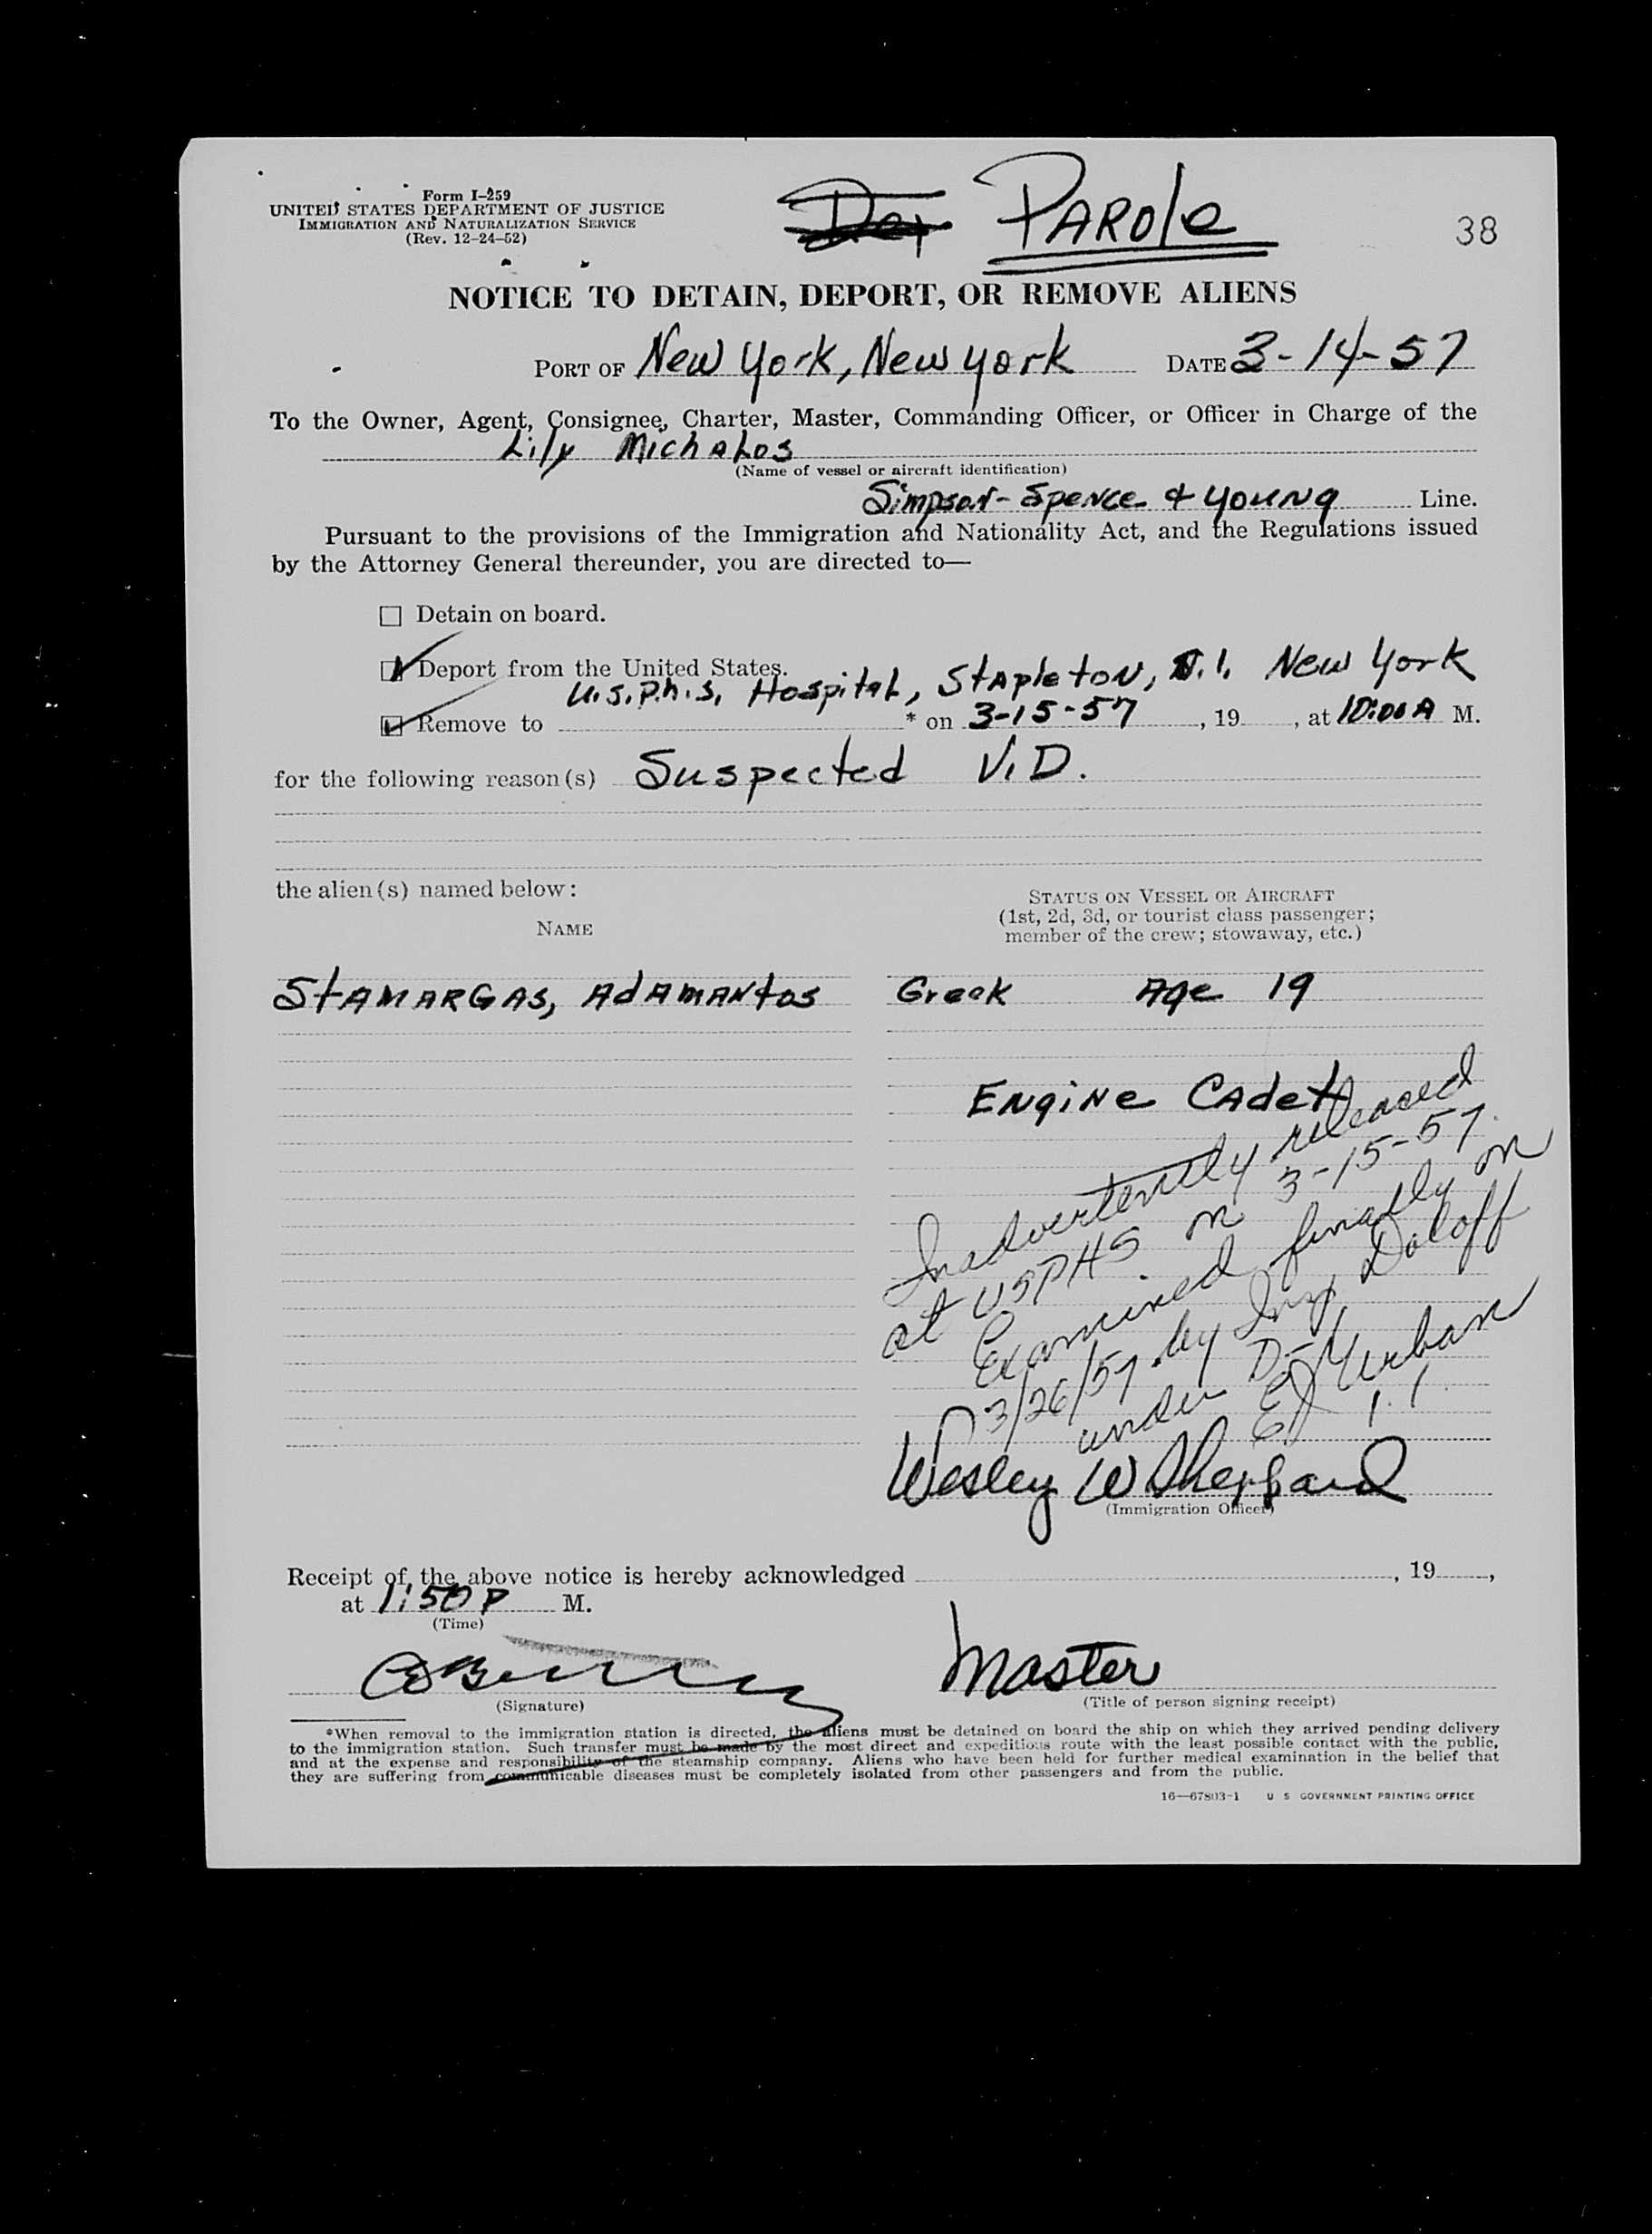 Form I-259
UNITED STATES DEPARTMENT OF JUSTICE
IMMIGRATION AND NATURALIZATION SERVICE
(Rev. 12-24-52)
PAROLE
38
NOTICE TO DETAIN, DEPORT, OR REMOVE ALIENS
PORT OF New York, New York DATE 3-14-57
To the Owner, Agent, Consignee, Charter, Master, Commanding Officer, or Officer in Charge of the
Lily Michalos
(Name of vessel or aircraft identification)
Simpson-Spence & Young Line.
Pursuant to the provisions of the Immigration and Nationality Act, and the Regulations issued
by the Attorney General thereunder, you are directed to—
☐ Detain on board.
☑ Deport from the United States.
U.S.P.h.S. Hospital, Stapleton, S.I. New York
☑ Remove to * on 3-15-57, 19 , at 10:00 A M.
for the following reason(s) Suspected V.D.
the alien(s) named below:
NAME
STATUS ON VESSEL OR AIRCRAFT
(1st, 2d, 3d, or tourist class passenger;
member of the crew; stowaway, etc.)
STAMARGAS, AdAMANtos Greek Age 19
Engine Cadet
Inadvertently released
at USPHS on 3-15-57.
Examined finally on
3/26/57 by Doloff
under
Urban
Wesley W Sheppard
(Immigration Officer)
Receipt of the above notice is hereby acknowledged , 19 ,
at 1:50 P M.
(Time)
Master
(Signature)
(Title of person signing receipt)
*When removal to the immigration station is directed, the aliens must be detained on board the ship on which they arrived pending delivery
to the immigration station. Such transfer must be made by the most direct and expeditious route with the least possible contact with the public,
and at the expense and responsibility of the steamship company. Aliens who have been held for further medical examination in the belief that
they are suffering from communicable diseases must be completely isolated from other passengers and from the public.
16—67803-1 U S GOVERNMENT PRINTING OFFICE